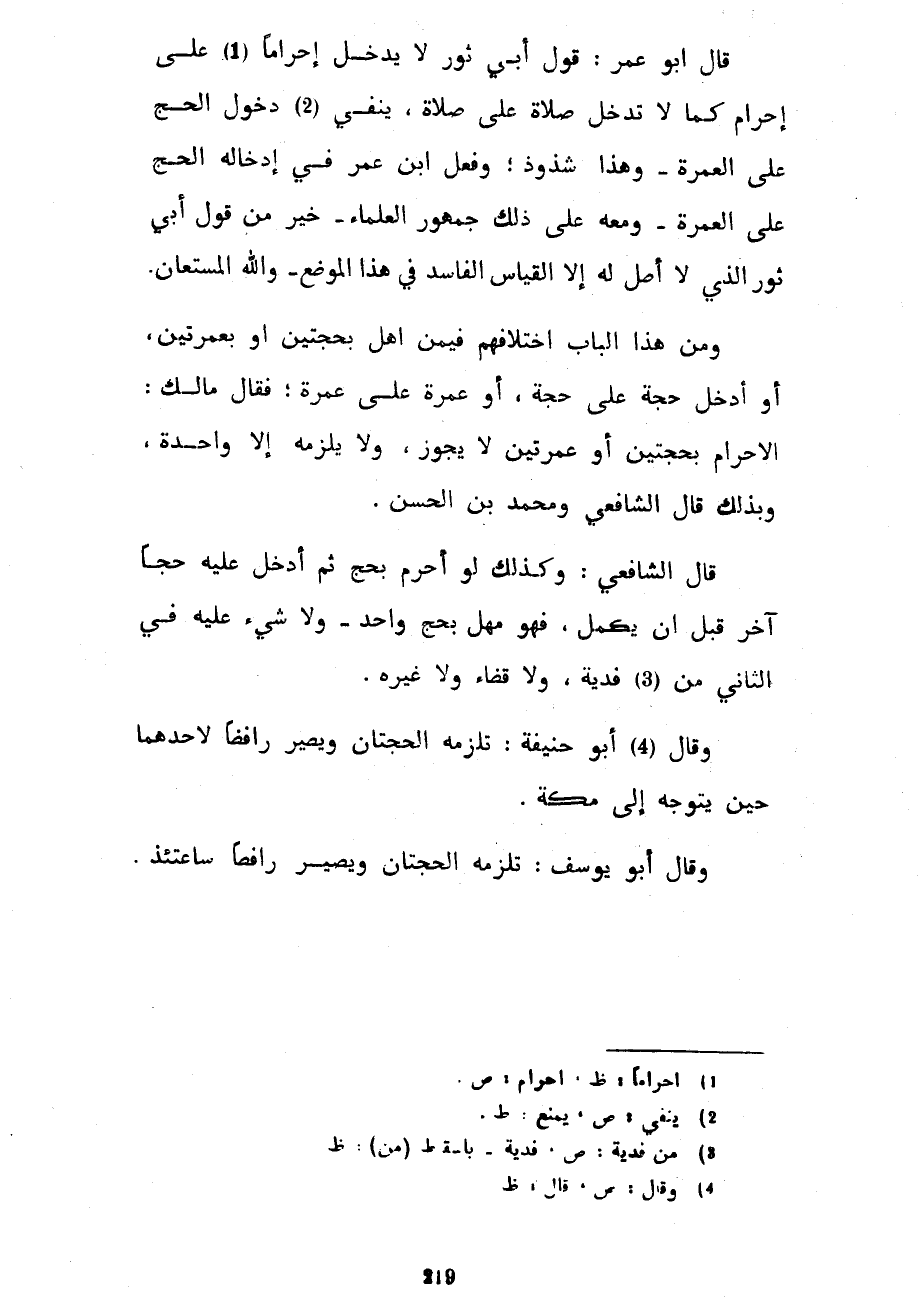 قال ابو عمر : قول أبي ثور لا يدخل إحراماً (1) على
إحرام كما لا تدخل صلاة على صلاة ، ينفي (2) دخول الحج
على العمرة ـ وهذا شذوذ ؛ وفعل ابن عمر في إدخاله الحج
على العمرة ـ ومعه على ذلك جمهور العلماء ـ خير من قول أبي
ثور الذي لا أصل له إلا القياس الفاسد في هذا الموضع ـ والله المستعان.
ومن هذا الباب اختلافهم فيمن اهل بحجتين او بعمرتين،
أو أدخل حجة على حجة ، أو عمرة على عمرة ؛ فقال مالك :
الاحرام بحجتين أو عمرتين لا يجوز ، ولا يلزمه إلا واحدة ،
وبذلك قال الشافعي ومحمد بن الحسن .
قال الشافعي : وكذلك لو أحرم بحج ثم أدخل عليه حجاً
آخر قبل ان يكمل ، فهو مهل بحج واحد ـ ولا شيء عليه في
الثاني من (3) فدية ، ولا قضاء ولا غيره .
وقال (4) أبو حنيفة : تلزمه الحجتان ويصير رافضاً لاحدهما
حين يتوجه إلى مكة .
وقال أبو يوسف : تلزمه الحجتان ويصير رافضاً ساعتئذ .
1) احراماً : ظ ، احرام : ص .
2) ينفي : ص ، يمنع : ط .
3) من فدية : ص ، فدية ـ باسقاط (من) : ظ
4) وقال : ص ، قال : ظ
219